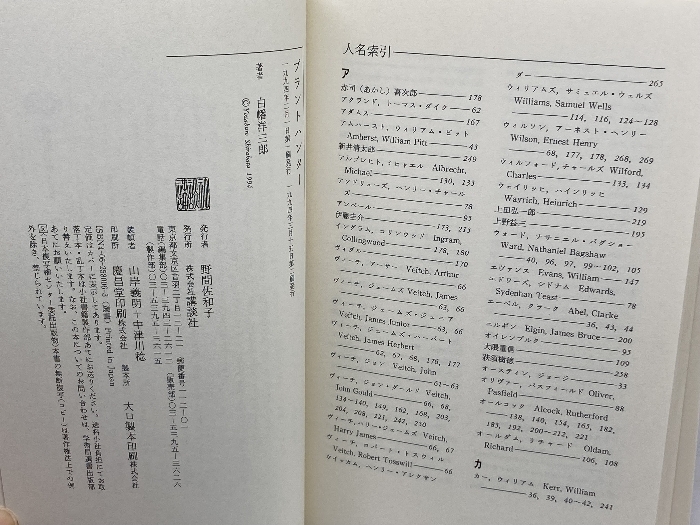 プラントハンター
一九九四年二月一日第一刷発行
著者
白幡洋三郎
©Yōzaburō Shirahata 1994
発行者 野間佐和子
発行所 株式会社講談社
東京都文京区音羽二丁目一二―二一 郵便番号一一二―〇一
装幀者 山岸義明＋中津川稔
印刷所 慶昌堂印刷株式会社 製本所 大口製本印刷株式会社
定価はカバーに表示してあります。
Printed in Japan
人名索引
ア
赤司（あかし）喜次郎 178
アクランド，トーマス・ダイク 62
アダムス 167
アムハースト，ウィリアム・ピット
Amherst, William Pitt 43
新井清太郎 249
アルブレヒト，ミヒャエル Albrecht,
Michael 130, 133
アンドリューズ，ヘンリー・チャール
ズ 78
アンベール 95
伊藤圭介 173, 213
イングラム，コリンウッド Ingram,
Collingwood 178, 180
ヴィダン 170
ヴィーチ，アーサー Veitch, Arthur
66
ヴィーチ，ジェームズ Veitch, James
63, 66
ヴィーチ，ジェームズ・ジュニア
Veitch, James Junior 63, 66
ヴィーチ，ジェームズ・ハーバート
Veitch, James Herbert
62, 67, 68, 176, 177
ヴィーチ，ジョン Veitch, John
61-63
ヴィーチ，ジョン・グールド Veitch,
John Gould 66, 68,
134-140, 149, 162, 168, 203,
204, 208, 221, 247, 250
ヴィーチ，ハリー・ジェームズ Veitch,
Harry James 66, 67
ヴィーチ，ロバート・トスウィル
Veitch, Robert Tosswill 66
ウイッカム，ヘンリー・アレクサン
ダー 265
ウィリアムズ，サミュエル・ウェルズ
Williams, Samuel Wells
114, 116, 124-128
ウィルソン，アーネスト・ヘンリー
Wilson, Ernest Henry
68, 177, 178, 268, 269
ウィルフォード，チャールズ Wilford,
Charles 133, 134
ウェイリッヒ，ハインリッヒ
Wayrich, Heinrich 129
上田弘一郎 219
上野益三 195
ウォード，ナサニエル・バグショー
Ward, Nathaniel Bagshaw
40, 96, 97, 99-102, 105
エヴァンス Evans, William 147
エドワーズ，シデナム Edwards,
Sydenham Teast 78
エーベル，クラーク Abel, Clarke
36, 43, 44
エルギン Elgin, James Bruce 200
オイレンブルク 95
大隈重信 109
荻巣樹徳 258
オースティン，ジョージー 33
オリヴァー，パスフィールド Oliver,
Pasfield 88
オールコック Alcock, Rutherford
138, 140, 154, 165, 182,
185, 192, 200-212, 221
オールダム，リチャード Oldam,
Richard 106, 108
カ
カー，ウィリアム Kerr, William
36, 39, 40-42, 241